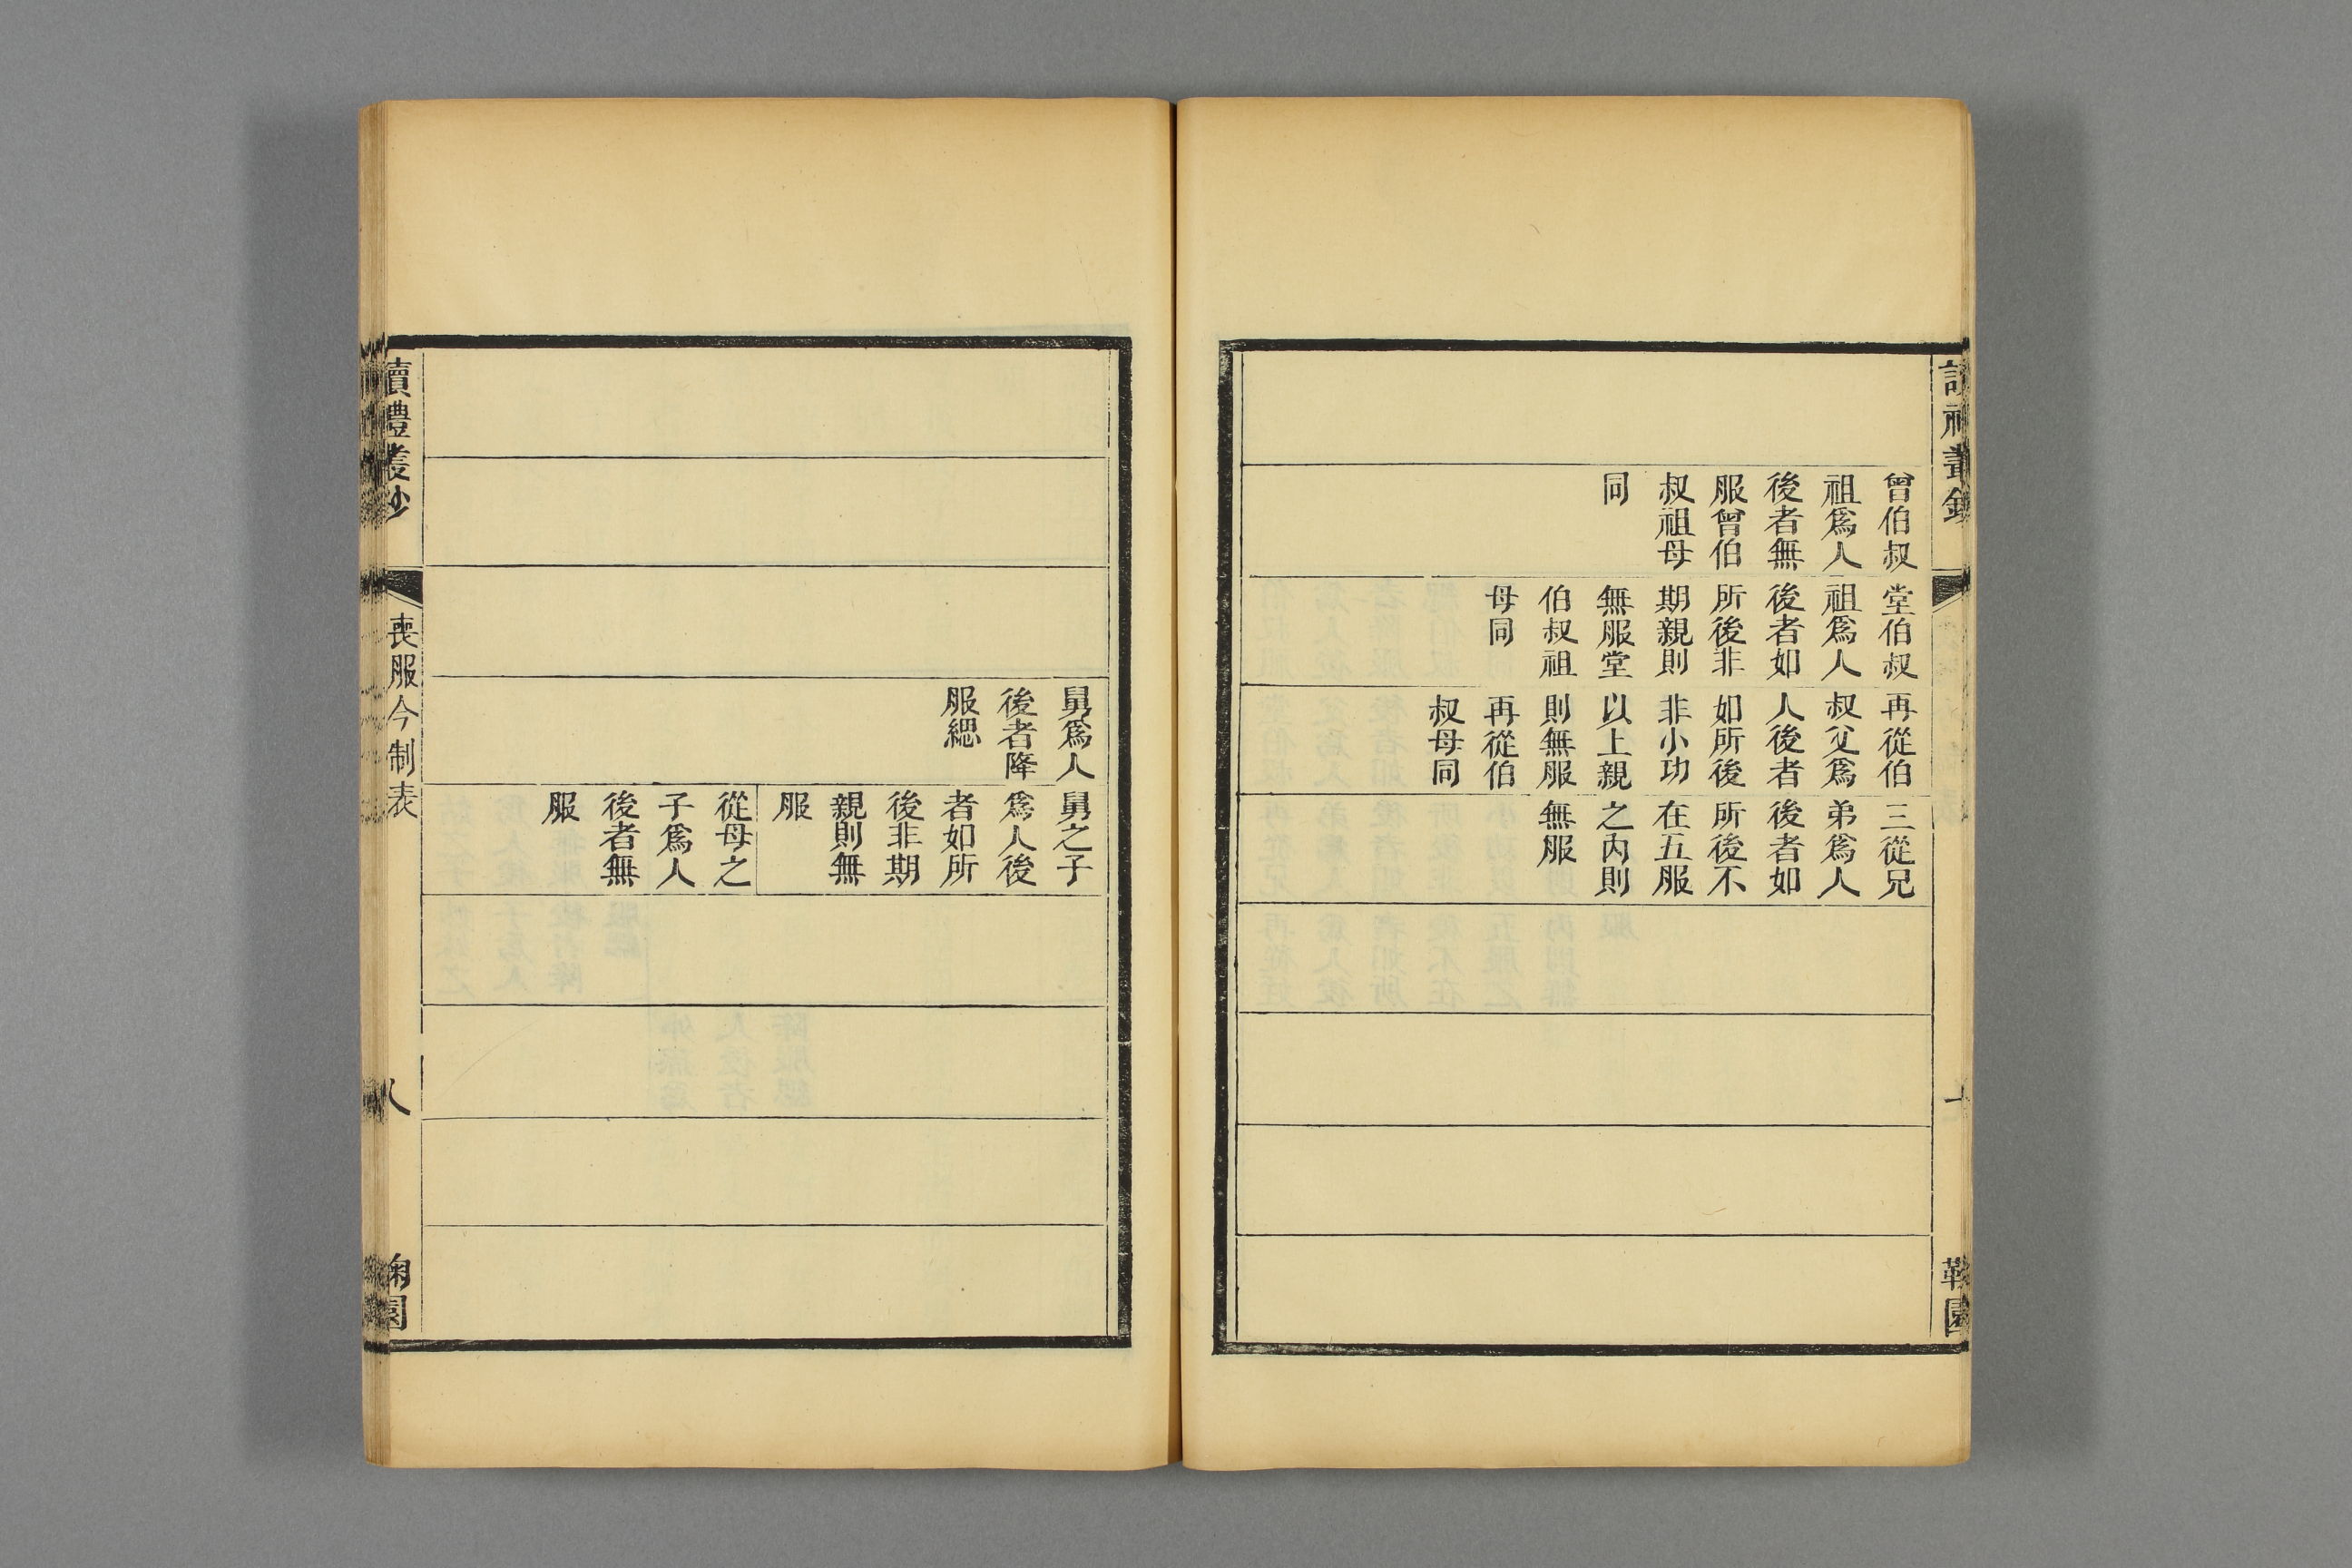 曾伯叔
祖爲人
後者無
服曾伯
叔祖母
同
堂伯叔
祖爲人
後者如
所後非
期親則
無服堂
伯叔祖
母同
再從伯
叔父爲
人後者
如所後
非小功
以上親
則無服
再從伯
叔母同
三從兄
弟爲人
後者如
所後不
在五服
之內則
無服
舅爲人
後者降
服緦
舅之子
爲人後
者如所
後非期
親則無
服
從母之
子爲人
後者無
服
讀禮叢鈔
喪服今制表
八
鞠園